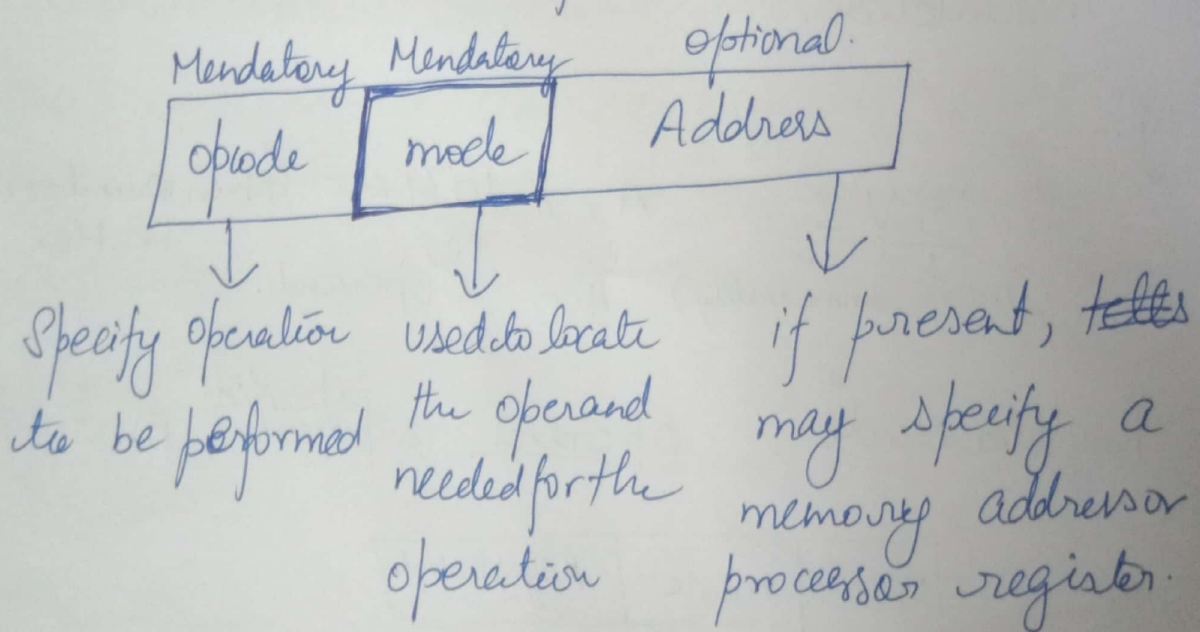 Mendatory Mendatory optional.
opcode mode Address
Specify operation
to be performed
used to locate
the operand
needed for the
operation
if present, tells
may specify a
memory address or
processor register.